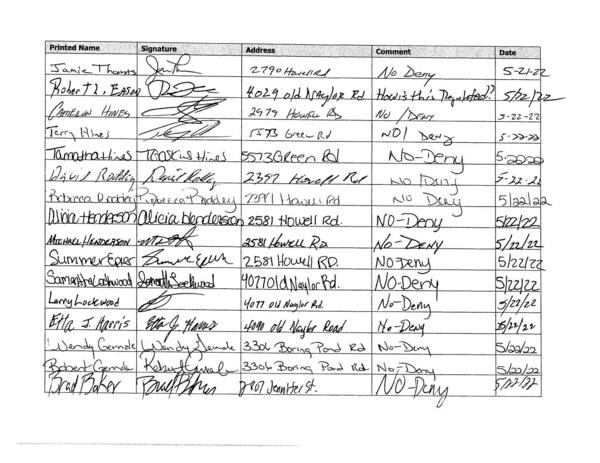 Printed Name Signature Address Comment Date
Jamie Thomas 2790 Howell Rd No Deny 5-21-22
Robert L. Eason 4029 old Naylor Rd How is this Regulated? 5/22/22
Cameron Hines 2979 Howell Rd No / Deny 5-22-22
Terry Hines 5573 Green Rd NO! Deny 5-22-22
Tamatha Hines Hines 5573 Green Rd No-Deny
David David 2397 Howell Rd No / Deny 5-22-22
Rebecca Rebecca Howell Rd No Deny 5/22/22
Alicia Henderson Alicia Henderson 2581 Howell Rd. NO-Deny 5/22/22
Michael Henderson 2581 Howell RD NO-Deny 5/22/22
Summer Summer 2581 Howell RD. NO Deny 5/22/22
Samantha Lockwood Samantha Lockwood 4077 Old Naylor Rd. NO-Deny 5/22/22
Larry Lockwood 4077 Old Naylor Rd. No-Deny 5/22/22
Etta J. Harris Etta J. Harris 4090 old Naylor Road No-Deny 5/22/22
Wendy Wendy 3306 Boring Pond Rd No-Deny 5/22/22
Robert Robert 3306 Boring Pond Rd No-Deny 5/22/22
Brad Baker Jennifer St. NO-Deny 5/22/22